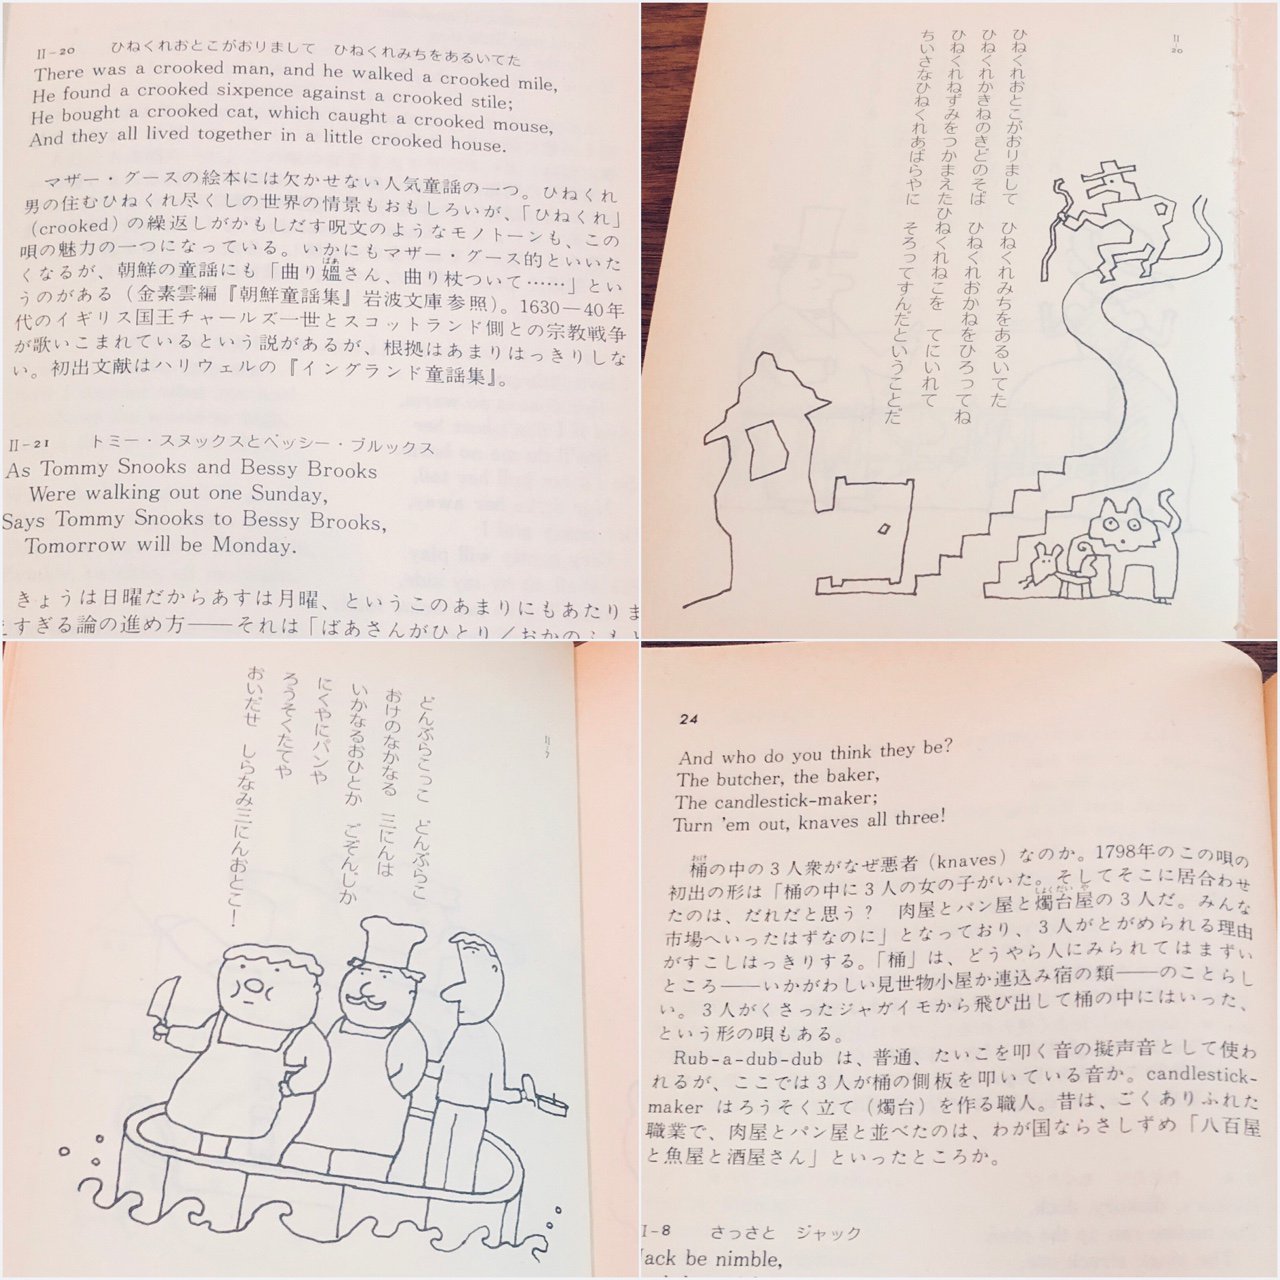 II-20　ひねくれおとこがおりまして　ひねくれみちをあるいてた
There was a crooked man, and he walked a crooked mile,
He found a crooked sixpence against a crooked stile;
He bought a crooked cat, which caught a crooked mouse,
And they all lived together in a little crooked house.
マザー・グースの絵本には欠かせない人気童謡の一つ。ひねくれ
男の住むひねくれ尽くしの世界の情景もおもしろいが、「ひねくれ」
(crooked) の繰返しがかもしだす呪文のようなモノトーンも、この
唄の魅力の一つになっている。いかにもマザー・グース的といいた
くなるが、朝鮮の童謡にも「曲り媼さん、曲り杖ついて……」とい
うのがある（金素雲編『朝鮮童謡集』岩波文庫参照）。1630—40年
代のイギリス国王チャールズ一世とスコットランド側との宗教戦争
が歌いこまれているという説があるが、根拠はあまりはっきりしな
い。初出文献はハリウェルの『イングランド童謡集』。
II-21　トミー・スヌックスとベッシー・ブルックス
As Tommy Snooks and Bessy Brooks
Were walking out one Sunday,
Says Tommy Snooks to Bessy Brooks,
Tomorrow will be Monday.
きょうは日曜だからあすは月曜、というこのあまりにもあたりま
えすぎる論の進め方——それは「ばあさんがひとり／おかのふもと
II-20
ひねくれおとこがおりまして　ひねくれみちをあるいてた
ひねくれかきねのきどのそば　ひねくれおかねをひろってね
ひねくれねずみをつかまえたひねくれねこを　てにいれて
ちいさなひねくれあばらやに　そろってすんだということだ
II-7
どんぶらこっこ　どんぶらこ
おけのなかなる　三にんは
いかなるおひとか　ごぞんじか
にくやにパンや
ろうそくたてや
おいだせ　しらなみ三にんおとこ！
24
And who do you think they be?
The butcher, the baker,
The candlestick-maker;
Turn 'em out, knaves all three!
桶の中の3人衆がなぜ悪者 (knaves) なのか。1798年のこの唄の
初出の形は「桶の中に3人の女の子がいた。そしてそこに居合わせ
たのは、だれだと思う？　肉屋とパン屋と燭台屋の3人だ。みんな
市場へいったはずなのに」となっており、3人がとがめられる理由
がすこしはっきりする。「桶」は、どうやら人にみられてはまずい
ところ——いかがわしい見世物小屋か連込み宿の類——のことらし
い。3人がくさったジャガイモから飛び出して桶の中にはいった、
という形の唄もある。
Rub-a-dub-dub は、普通、たいこを叩く音の擬声音として使わ
れるが、ここでは3人が桶の側板を叩いている音か。candlestick-
maker はろうそく立て（燭台）を作る職人。昔は、ごくありふれた
職業で、肉屋とパン屋と並べたのは、わが国ならさしずめ「八百屋
と魚屋と酒屋さん」といったところか。
I-8　さっさと　ジャック
Jack be nimble,